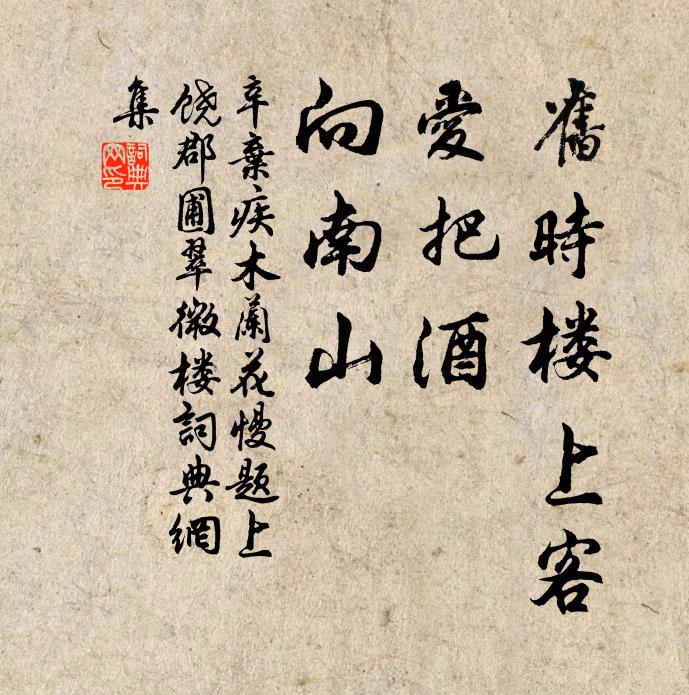 舊時楼上客
愛把酒
向南山
辛棄疾木蘭花慢题上
饶郡圃翠微楼詞典網
集
詞典
网印